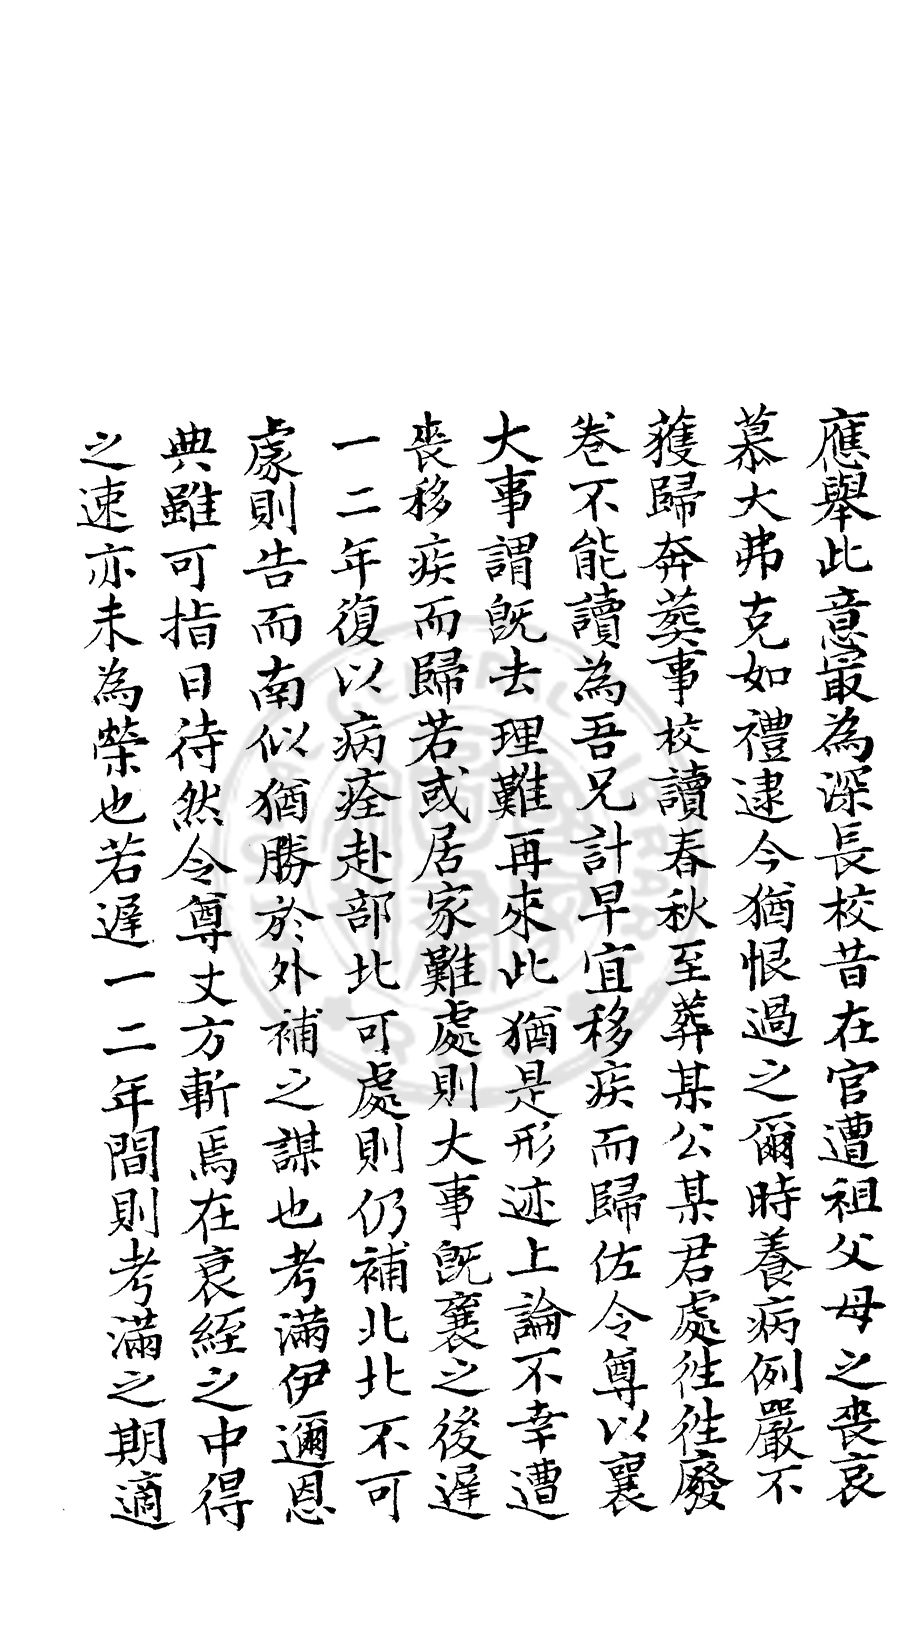 應舉此意最為深長校昔在官遭祖父母之喪哀
慕大弗克如禮逮今猶恨過之爾時養病例嚴不
獲歸奔葬事校讀春秋至葬某公某君處徃徃廢
卷不能讀為吾兄計早宜移疾而歸佐令尊以襄
大事謂既去理難再來此猶是形迹上論不幸遭
喪移疾而歸若或居家難處則大事既襄之後遲
一二年復以病痊赴部北可處則仍補北北不可
處則告而南似猶勝於外補之謀也考滿伊邇恩
典雖可指日待然令尊丈方斬焉在衰絰之中得
之速亦未為榮也若遲一二年間則考滿之期適